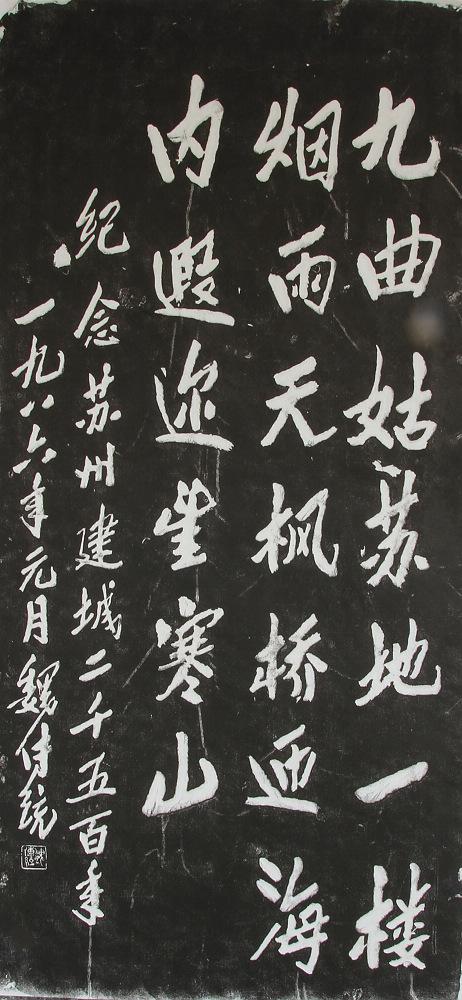 九曲姑苏地一楼
烟雨天枫桥海
内遐迩寒山
纪念苏州建城二千五百年
一九八六年元月魏传统